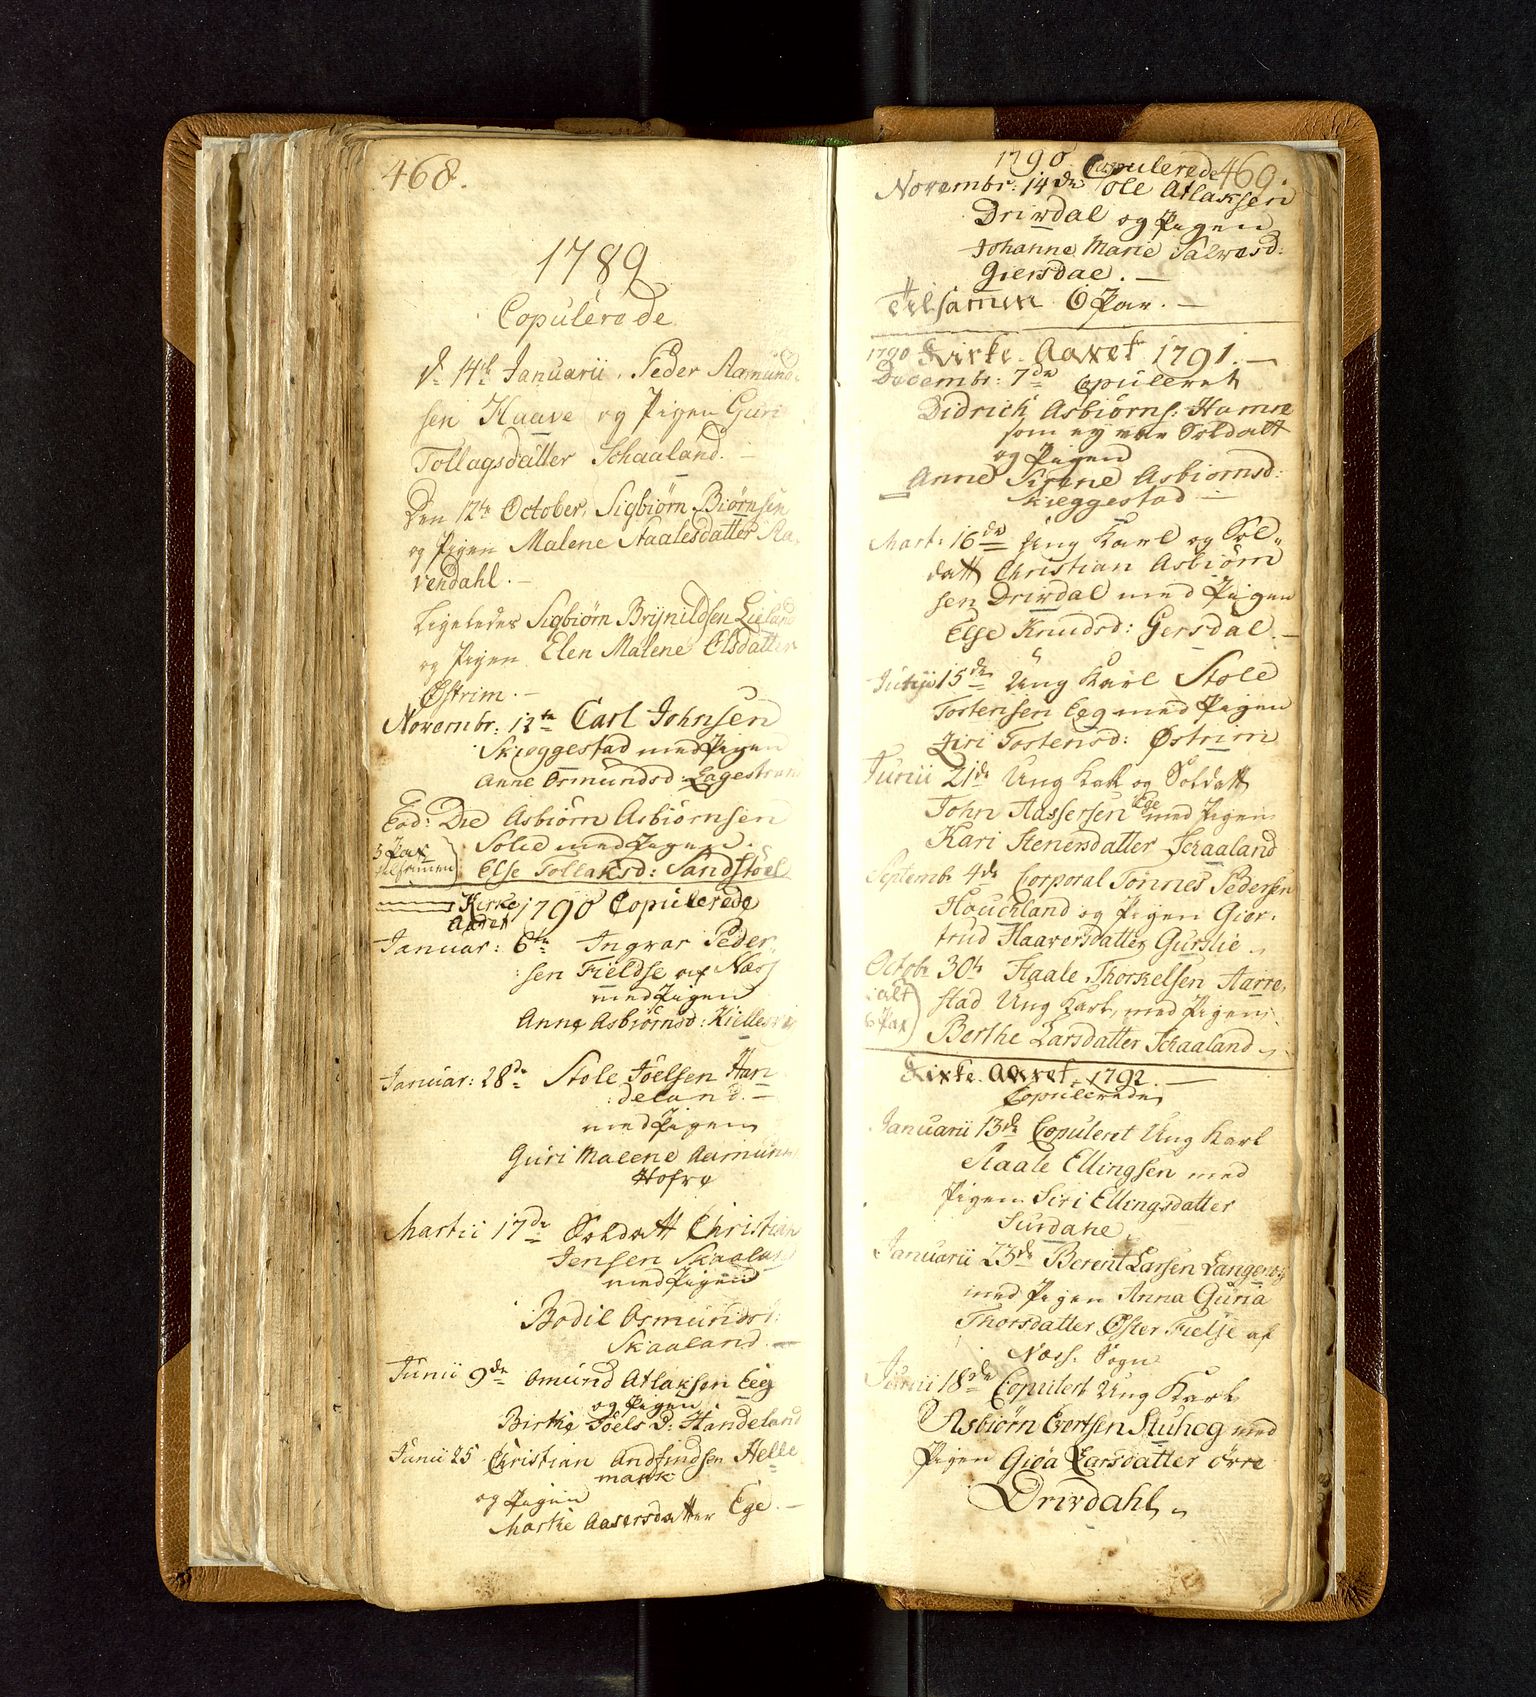 468.
1789
Copulerede
d. 14de Januarii, Peder Aamund-
sen Haave og Pigen Guri
Tollagsdatter Schaaland. –
Den 12te October, Sigbiørn Biørnsen
og Pigen Malene Staalesdatter Ra-
vendahl. –
Ligeledes Sigbiørn Brynildsen Lieland
og Pigen Elen Malene Olsdatter
Østrim. –
Novembr: 12te Carl Johnsen
Skieggestad med Pigen
Anne Osmundsd: Eagestran
Eod: Die Asbiørn Asbiørnsen
Solid med Pigen.
5 Par tilsammen Else Tollaksd: Sandstøel
Kirke Aaret 1790 Copulerede
Januar: 6te Ingvar Peder-
sen Fieldse af Næss
med Pigen
Anne Asbiørnsd: Kielles
Januar: 28de Stole Joelsen Han
deland. –
med Pigen
Guri Malene Aamun
Hofre
Martii 17de Soldatt Christian
Jensen Skaaland
med Pigen
Bodil Osmundsd:
Skaaland –
Junii 9de Omund Atlaksen Eeg
og Pigen
Birthe Joels D: Handeland
Junii 25 Christian Andfindsen Helle
mark
og Pigen
Marthe Aasersdatter Ege. –
1790 Copulerede 469.
Novembr: 14de Ole Atlaksen
Drivdal og Pigen
Johanne Marie Salvesd:
Giersdal. –
Tilsamen 6 Par. –
1790 Kirke-Aaret 1791. –
Decembr: 7de Copuleret
Didrich Asbiørns: Hamre
som ey var Soldatt
og Pigen
Anne Sirene Asbiørnsd:
Skieggestad –
Mart: 16de Ung Karl og Sol-
datt Christian Asbiørn
sen Drivdal med Pigen
Else Knudsd: Gersdal. –
15de Ung Karl Stole
Tostensen Eeg med Pigen
Siri Tostensd: Østrim
Junii 21de Ung Karl og Soldatt
John Aassersen Ege med Pigen
Kari Stenersdatter Schaaland
Septemb 4de Corporal Tønnes Pedersen
Houchland og Pigen Gier-
trud Haaversdatter Gurslie
Octobr 30te Staale Thorkelsen Aarre-
ialt stad Ung Karl, med Pigen
6 Par Berthe Larsdatter Schaaland
Kirke-Aaret 1792. –
Copulerede
Januarii 13de Copuleret Ung Karl
Staale Ellingsen med
Pigen Siri Ellingsdatter
Surdahe
Januarii 23de Berent Larsen
med Pigen Anna Guria
Thorsdatter Øster Fielse af
Næss: Sogn
Junii 18de Copulert Ung Karl
Asbiørn Evertsen Stuhog med
Pigen Gioa Larsdatter övre
Drivdahl